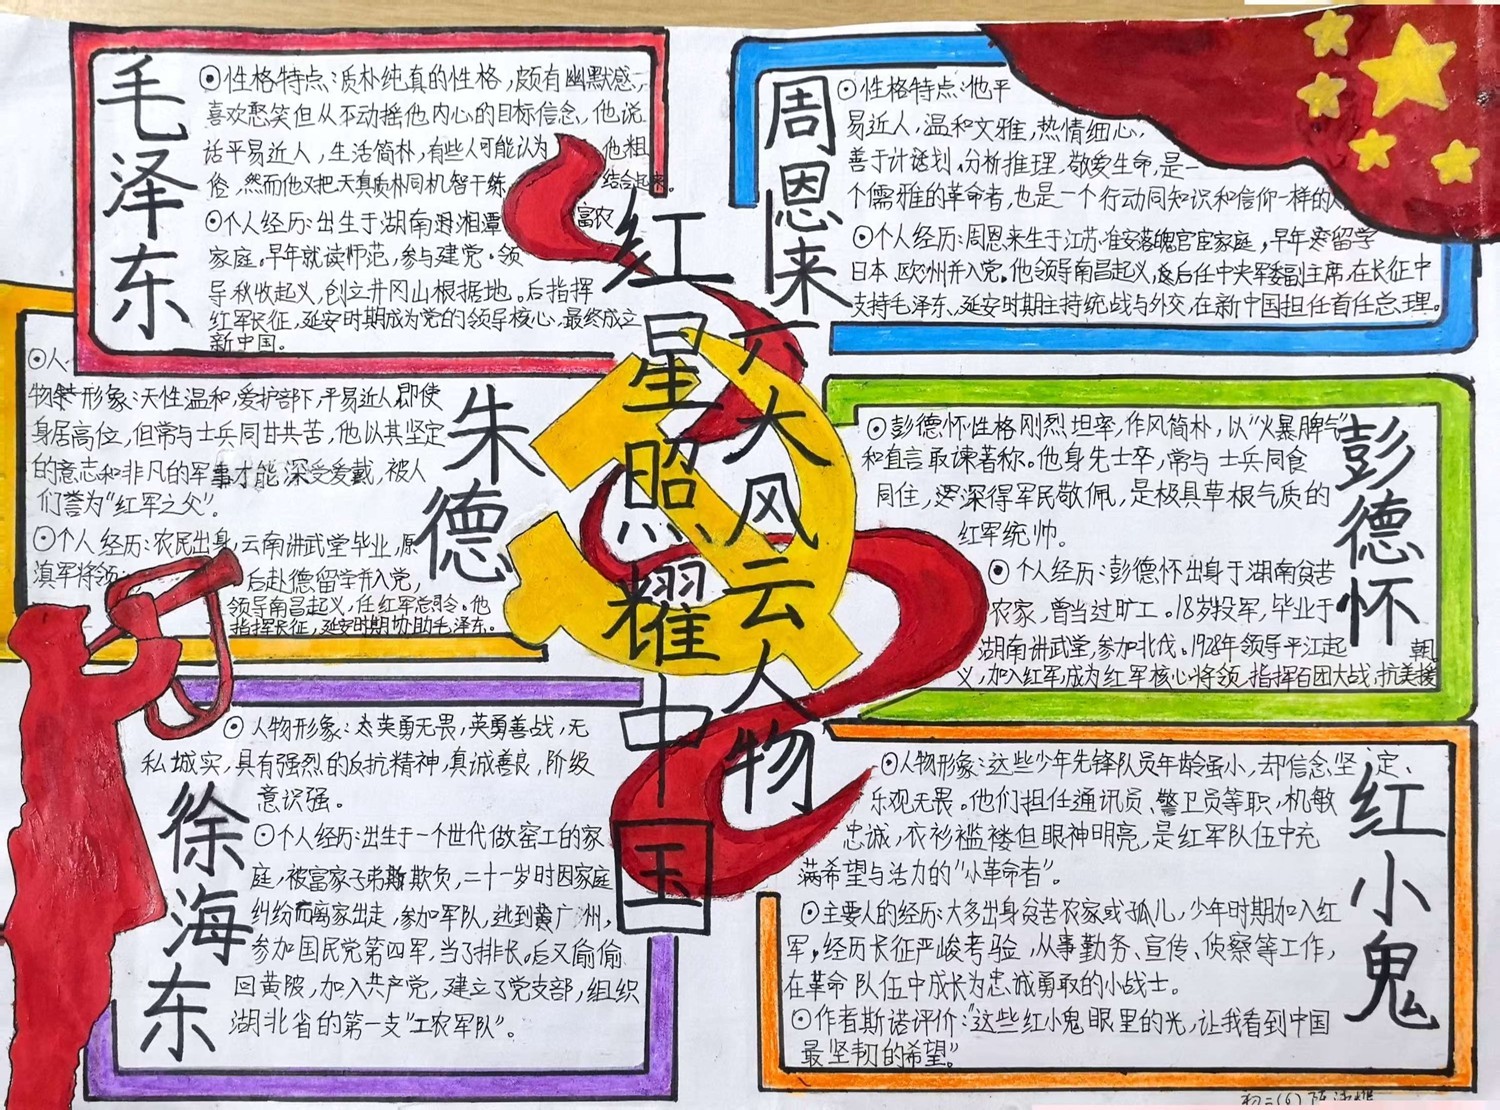 红星照耀中国
六大风云人物
毛泽东
⊙性格特点:质朴纯真的性格,颇有幽默感,
喜欢憨笑但从不动摇他内心的目标信念,他说
话平易近人,生活简朴,有些人可能认为他粗
俗,然而他又把天真质朴同机智干练结合起来。
⊙个人经历:出生于湖南湘潭富农
家庭。早年就读师范,参与建党。领
导秋收起义,创立井冈山根据地。后指挥
红军长征,延安时期成为党的领导核心,最终成立
新中国。
周恩来
⊙性格特点:他平
易近人,温和文雅,热情细心,
善于计划,分析推理,敬爱生命,是一
个儒雅的革命者,也是一个行动同知识和信仰一样的人
⊙个人经历:周恩来生于江苏淮安落魄官宦家庭,早年留学
日本、欧州并入党。他领导南昌起义,后任中央军委副主席,在长征中
支持毛泽东、延安时期主持统战与外交,在新中国担任首任总理。
朱德
⊙人
物形象:天性温和,爱护部下,平易近人,即使
身居高位,但常与士兵同甘共苦,他以其坚定
的意志和非凡的军事才能,深受爱戴,被人
们誉为“红军之父”。
⊙个人经历:农民出身,云南讲武堂毕业,原
滇军将领,
后赴德留学并入党,
领导南昌起义,任红军总司令。他
指挥长征,延安时期协助毛泽东。
彭德怀
⊙彭德怀性格刚烈坦率,作风简朴,以“火暴脾气”
和直言敢谏著称。他身先士卒,常与士兵同食
同住,深得军民敬佩,是极具草根气质的
红军统帅。
⊙个人经历:彭德怀出身于湖南贫苦
农家,曾当过旷工。18岁投军,毕业于
湖南讲武堂,参加北伐。1928年领导平江起
义,加入红军,成为红军核心将领,指挥百团大战,抗美援
朝
徐海东
⊙人物形象:英勇无畏,英勇善战,无
私城实,具有强烈的反抗精神,真诚善良,阶级
意识强。
⊙个人经历:出生于一个世代做窑工的家
庭,被富家子弟欺负,二十一岁时因家庭
纠纷而离家出走,参加军队,逃到广州,
参加国民党第四军,当了排长。后又偷偷
回黄陂,加入共产党,建立了党支部,组织
湖北省的第一支“工农军队”。
红小鬼
⊙人物形象:这些少年先锋队员年龄虽小,却信念坚定、
乐观无畏。他们担任通讯员、警卫员等职,机敏
忠诚,衣衫褴褛但眼神明亮,是红军队伍中充
满希望与活力的“小革命者”。
⊙主要人的经历:大多出身贫苦农家或孤儿,少年时期加入红
军,经历长征严峻考验,从事勤务、宣传、侦察等工作,
在革命队伍中成长为忠诚勇敢的小战士。
⊙作者斯诺评价:“这些红小鬼眼里的光,让我看到中国
最坚韧的希望”
初二(6)